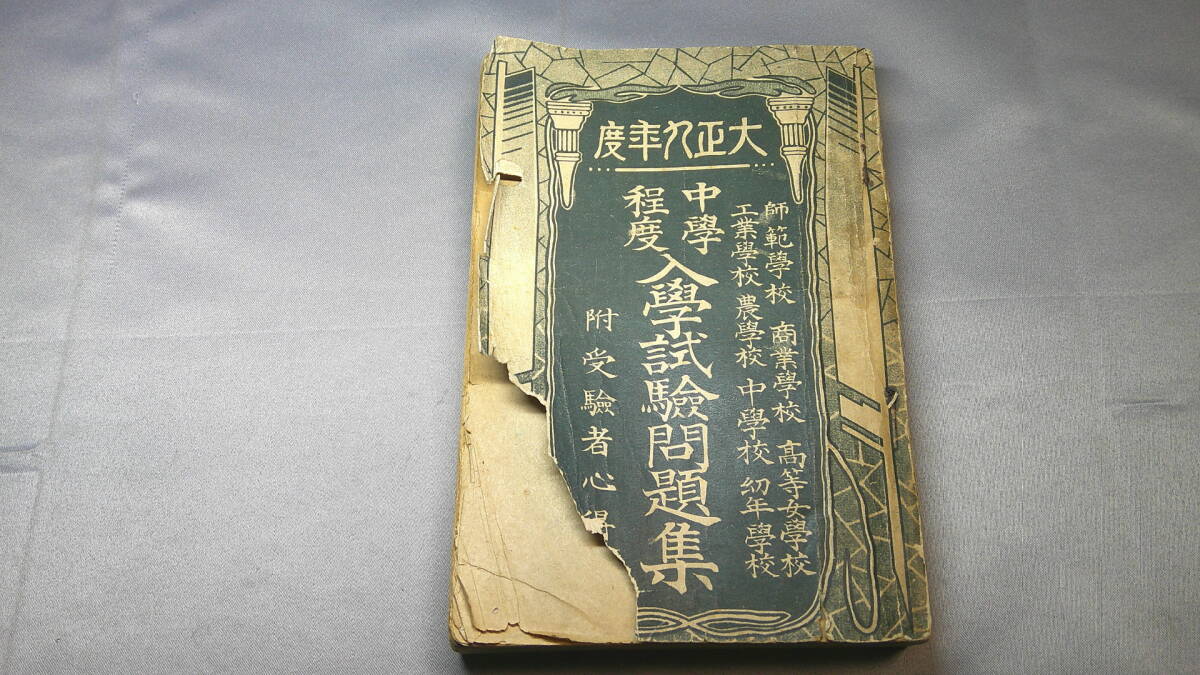 大正九年度
師範學校 商業學校 高等女學校
工業學校 農學校 中學校 幼年學校
中學程度入學試驗問題集
附受驗者心得